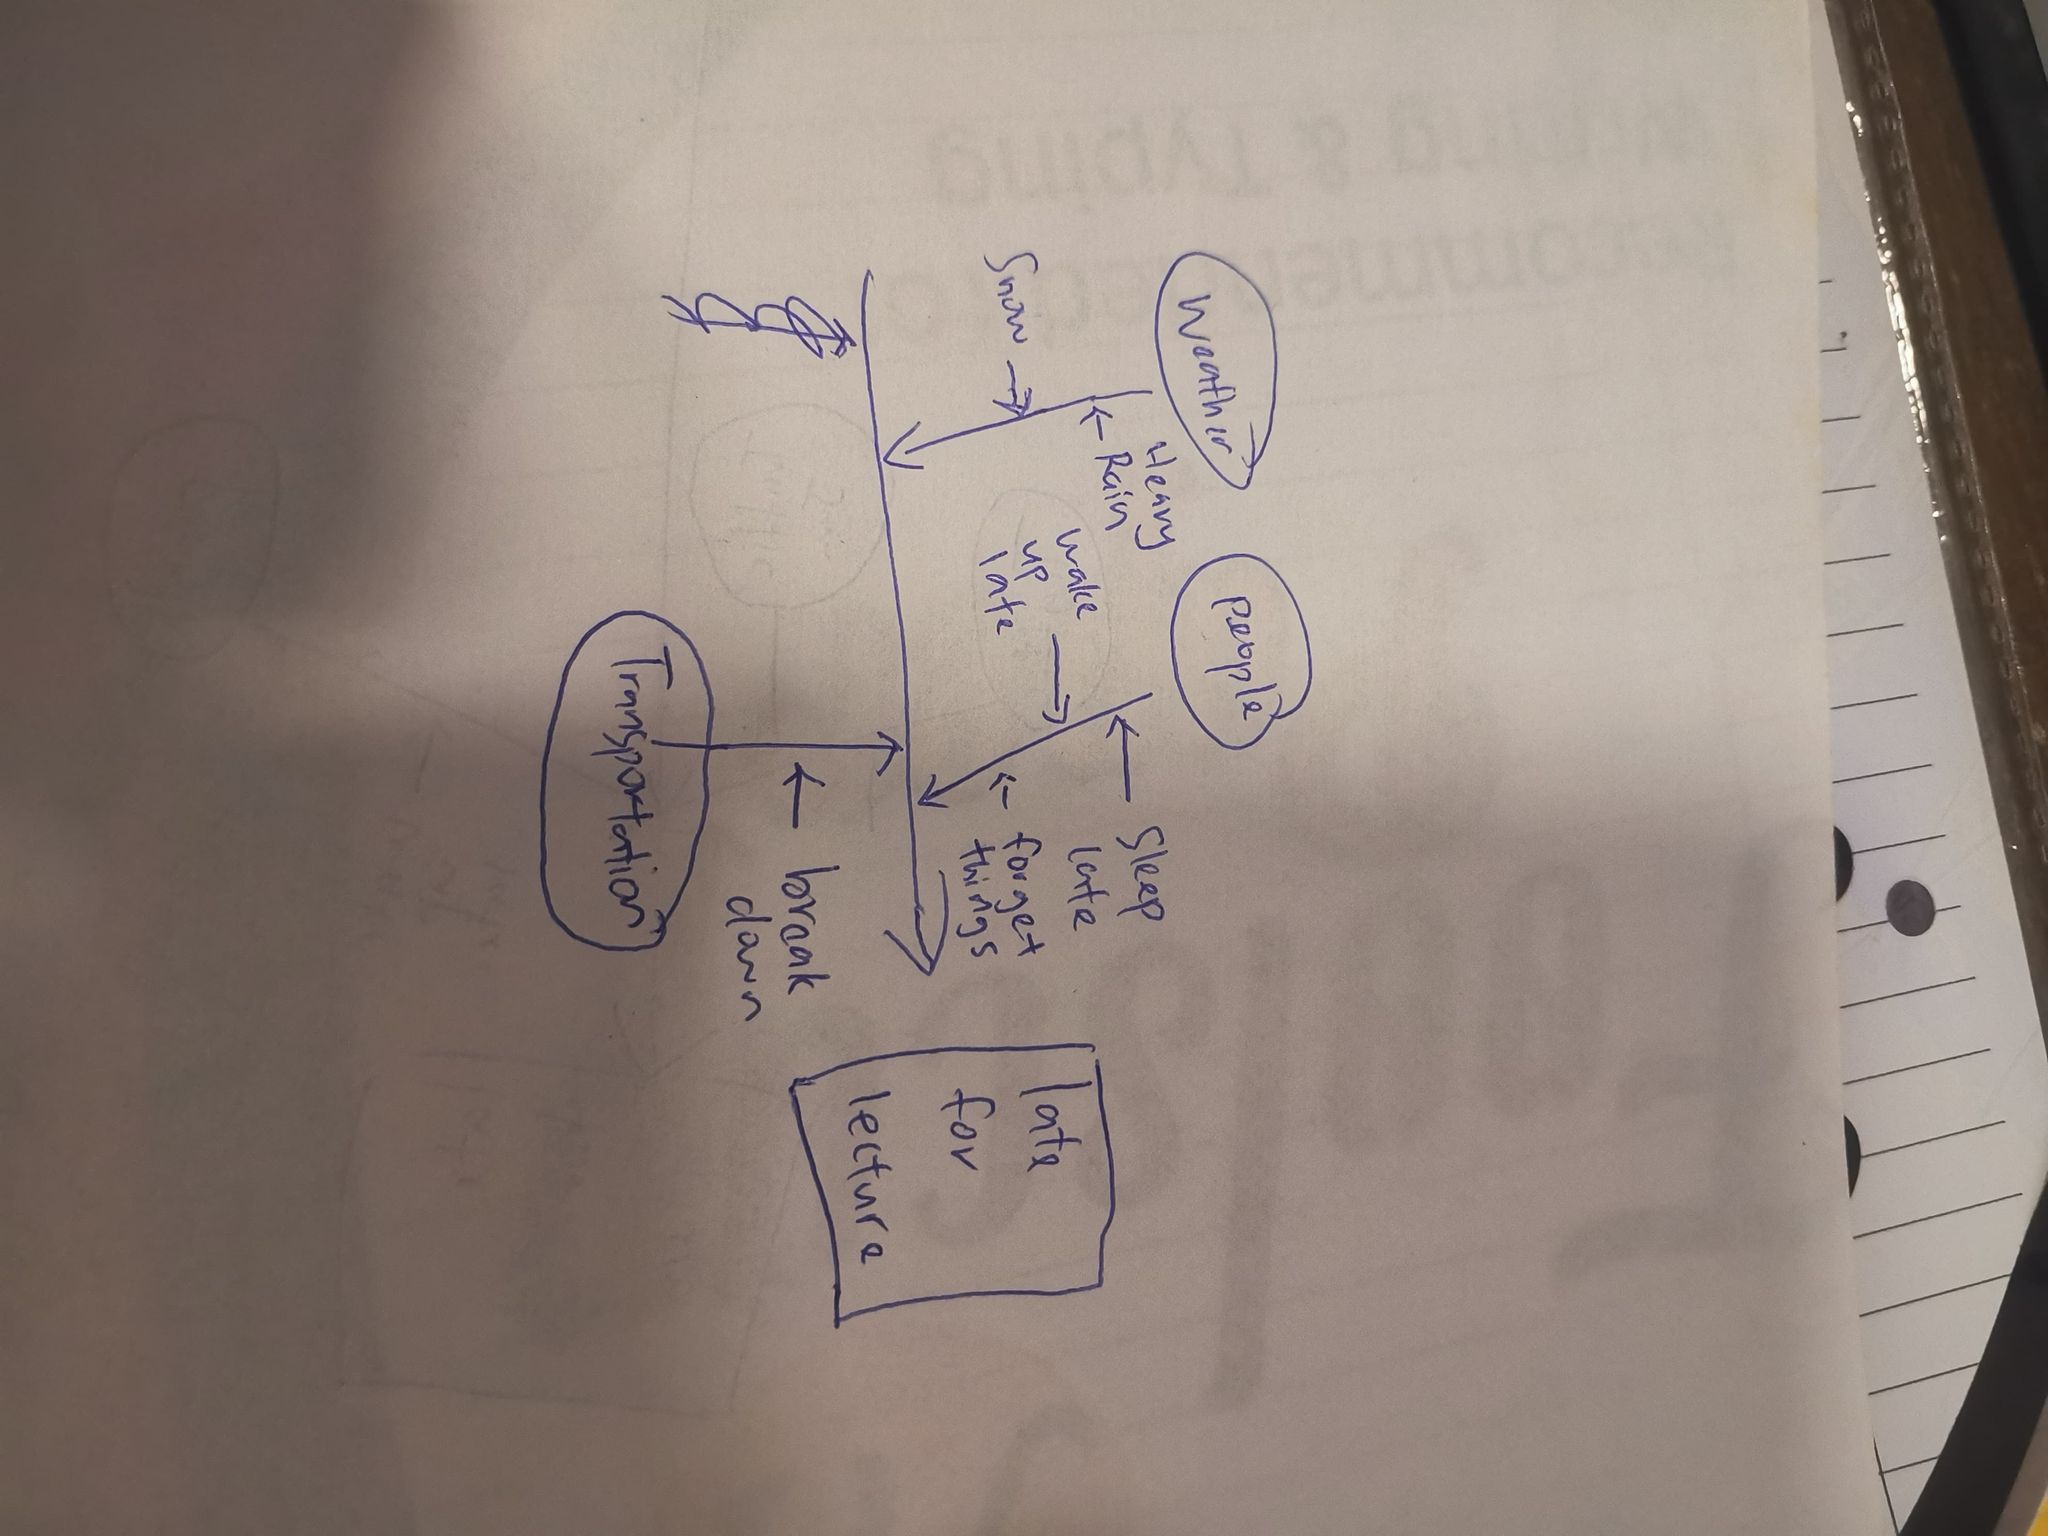 Weather
people
Heavy
Rain
Snow
wake
up
late
Sleep
late
forget
things
late
for
lecture
break
down
Transportation